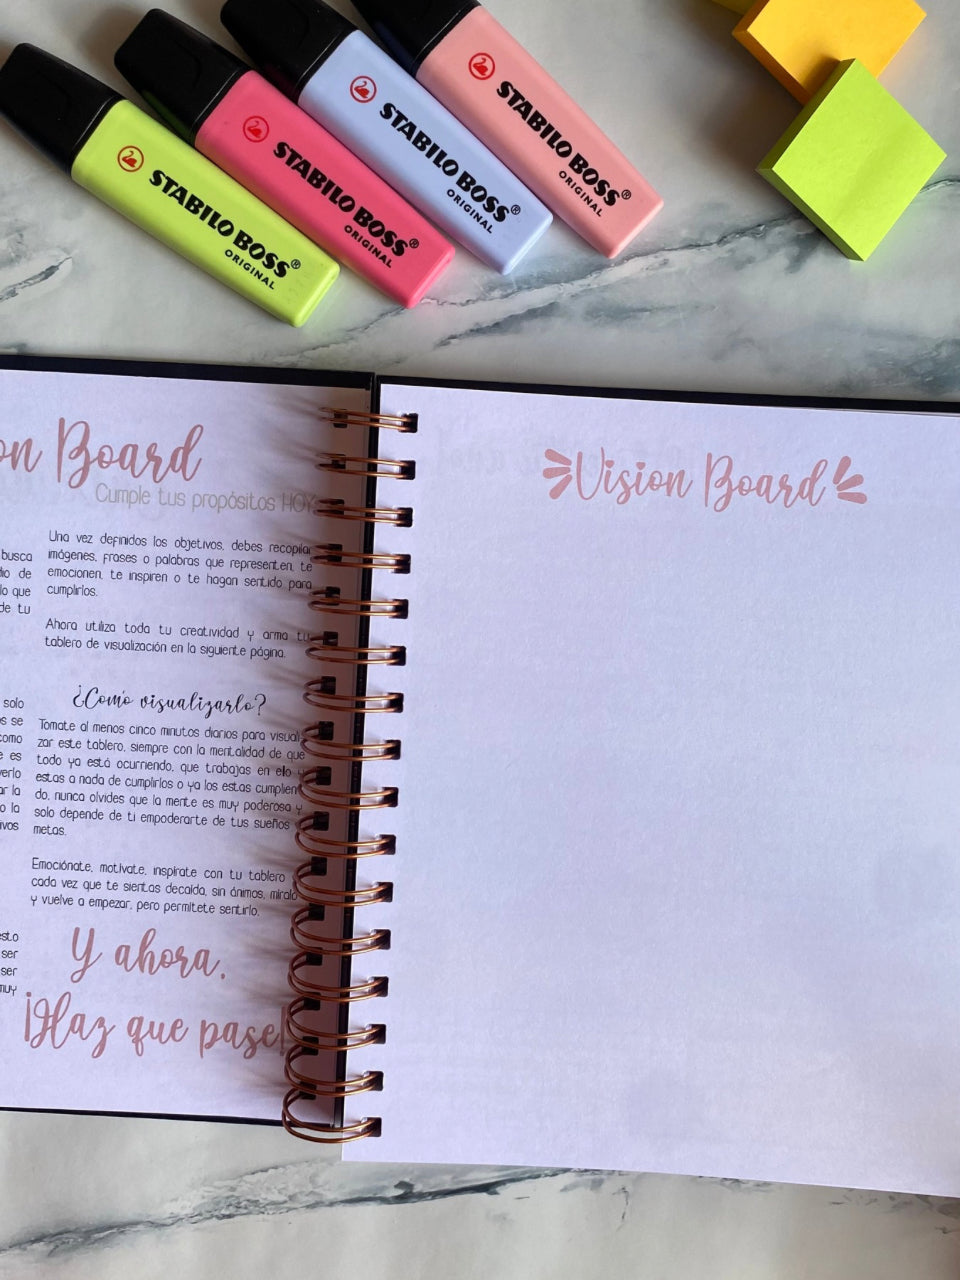 STABILO BOSS®
ORIGINAL
STABILO BOSS®
ORIGINAL
STABILO BOSS®
ORIGINAL
STABILO BOSS®
ORIGINAL
Board
Cumple tus propósitos HOY
busca
de
lo que
de tu
solo
se
como
es
la
o la
ser
ser
Una vez definidos los objetivos, debes recopilar
imágenes, frases o palabras que representen, te
emocionen, te inspiren o te hagan sentido para
cumplirlos.
Ahora utiliza toda tu creatividad y arma tu
tablero de visualización en la siguiente página.
¿Como visualizarlo?
Tomate al menos cinco minutos diarios para visuali-
zar este tablero, siempre con la mentalidad de que
todo ya está ocurriendo, que trabajas en ello y
estas a nada de cumplirlos o ya los estas cumplien-
do, nunca olvides que la mente es muy poderosa y
solo depende de ti empoderarte de tus sueños
metas.
Emociónate, motívate, inspírate con tu tablero
cada vez que te sientas decaída, sin ánimos, míralo
y vuelve a empezar, pero permítete sentirlo.
Y ahora,
¡Haz que pase!
Vision Board